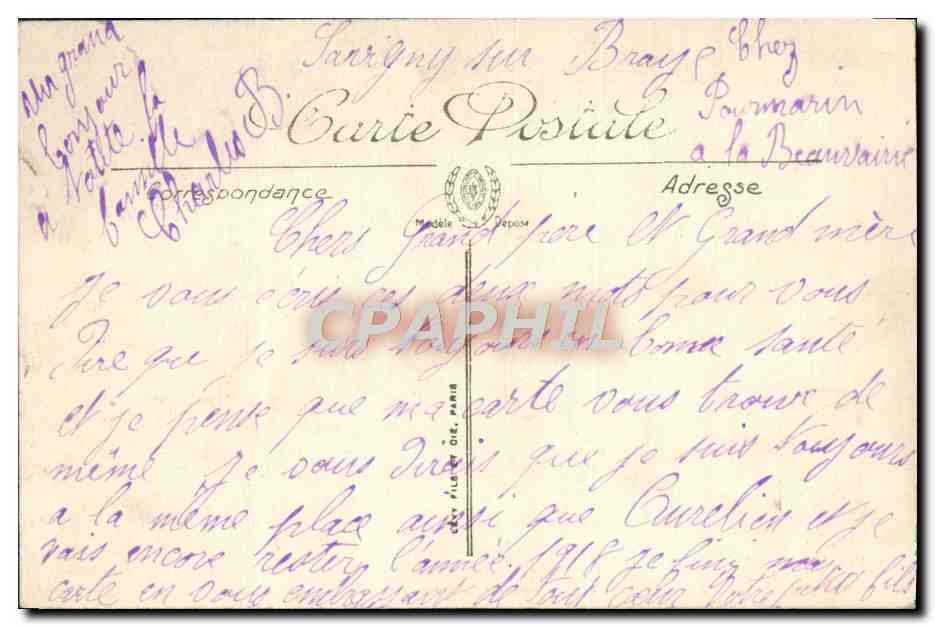 Savigny sur Braye Chez
Pourmarin
a la Beauvairie
un grand
bonjour
a Notte la
famille
Charles B.
Carte Postale
Correspondance
Adresse
Modèle Déposé
Chers Grand père et Grand mère
je vous écris ces deux mots pour vous
dire que je suis toujours en bonne santé
et je pense que ma carte vous trouve de
même je vous dirais que je suis toujours
a la même place ainsi que Aurelien et je
vais encore rester l'année 1918 je finis ma
carte en vous embrassant de tout cœur Votre petit fils
LÉVY FILS ET CIE, PARIS
CPAPHIL